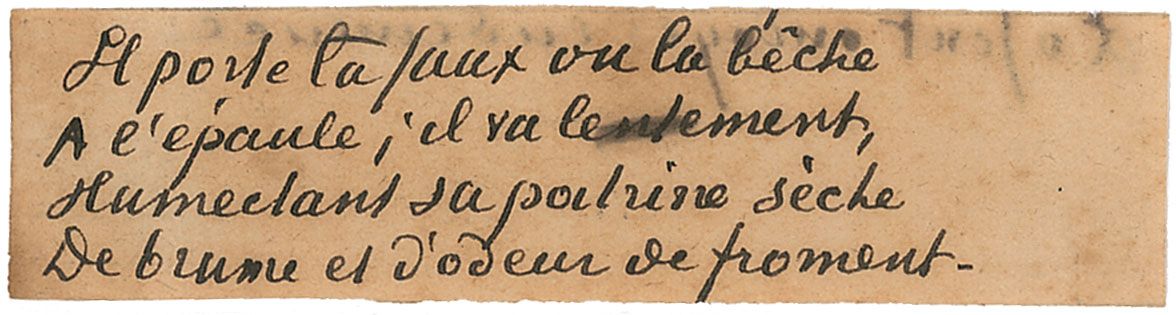 Il porte la faux ou la bêche
A l'épaule ; il va lentement,
Humectant sa poitrine sèche
De brume et d'odeur de froment.